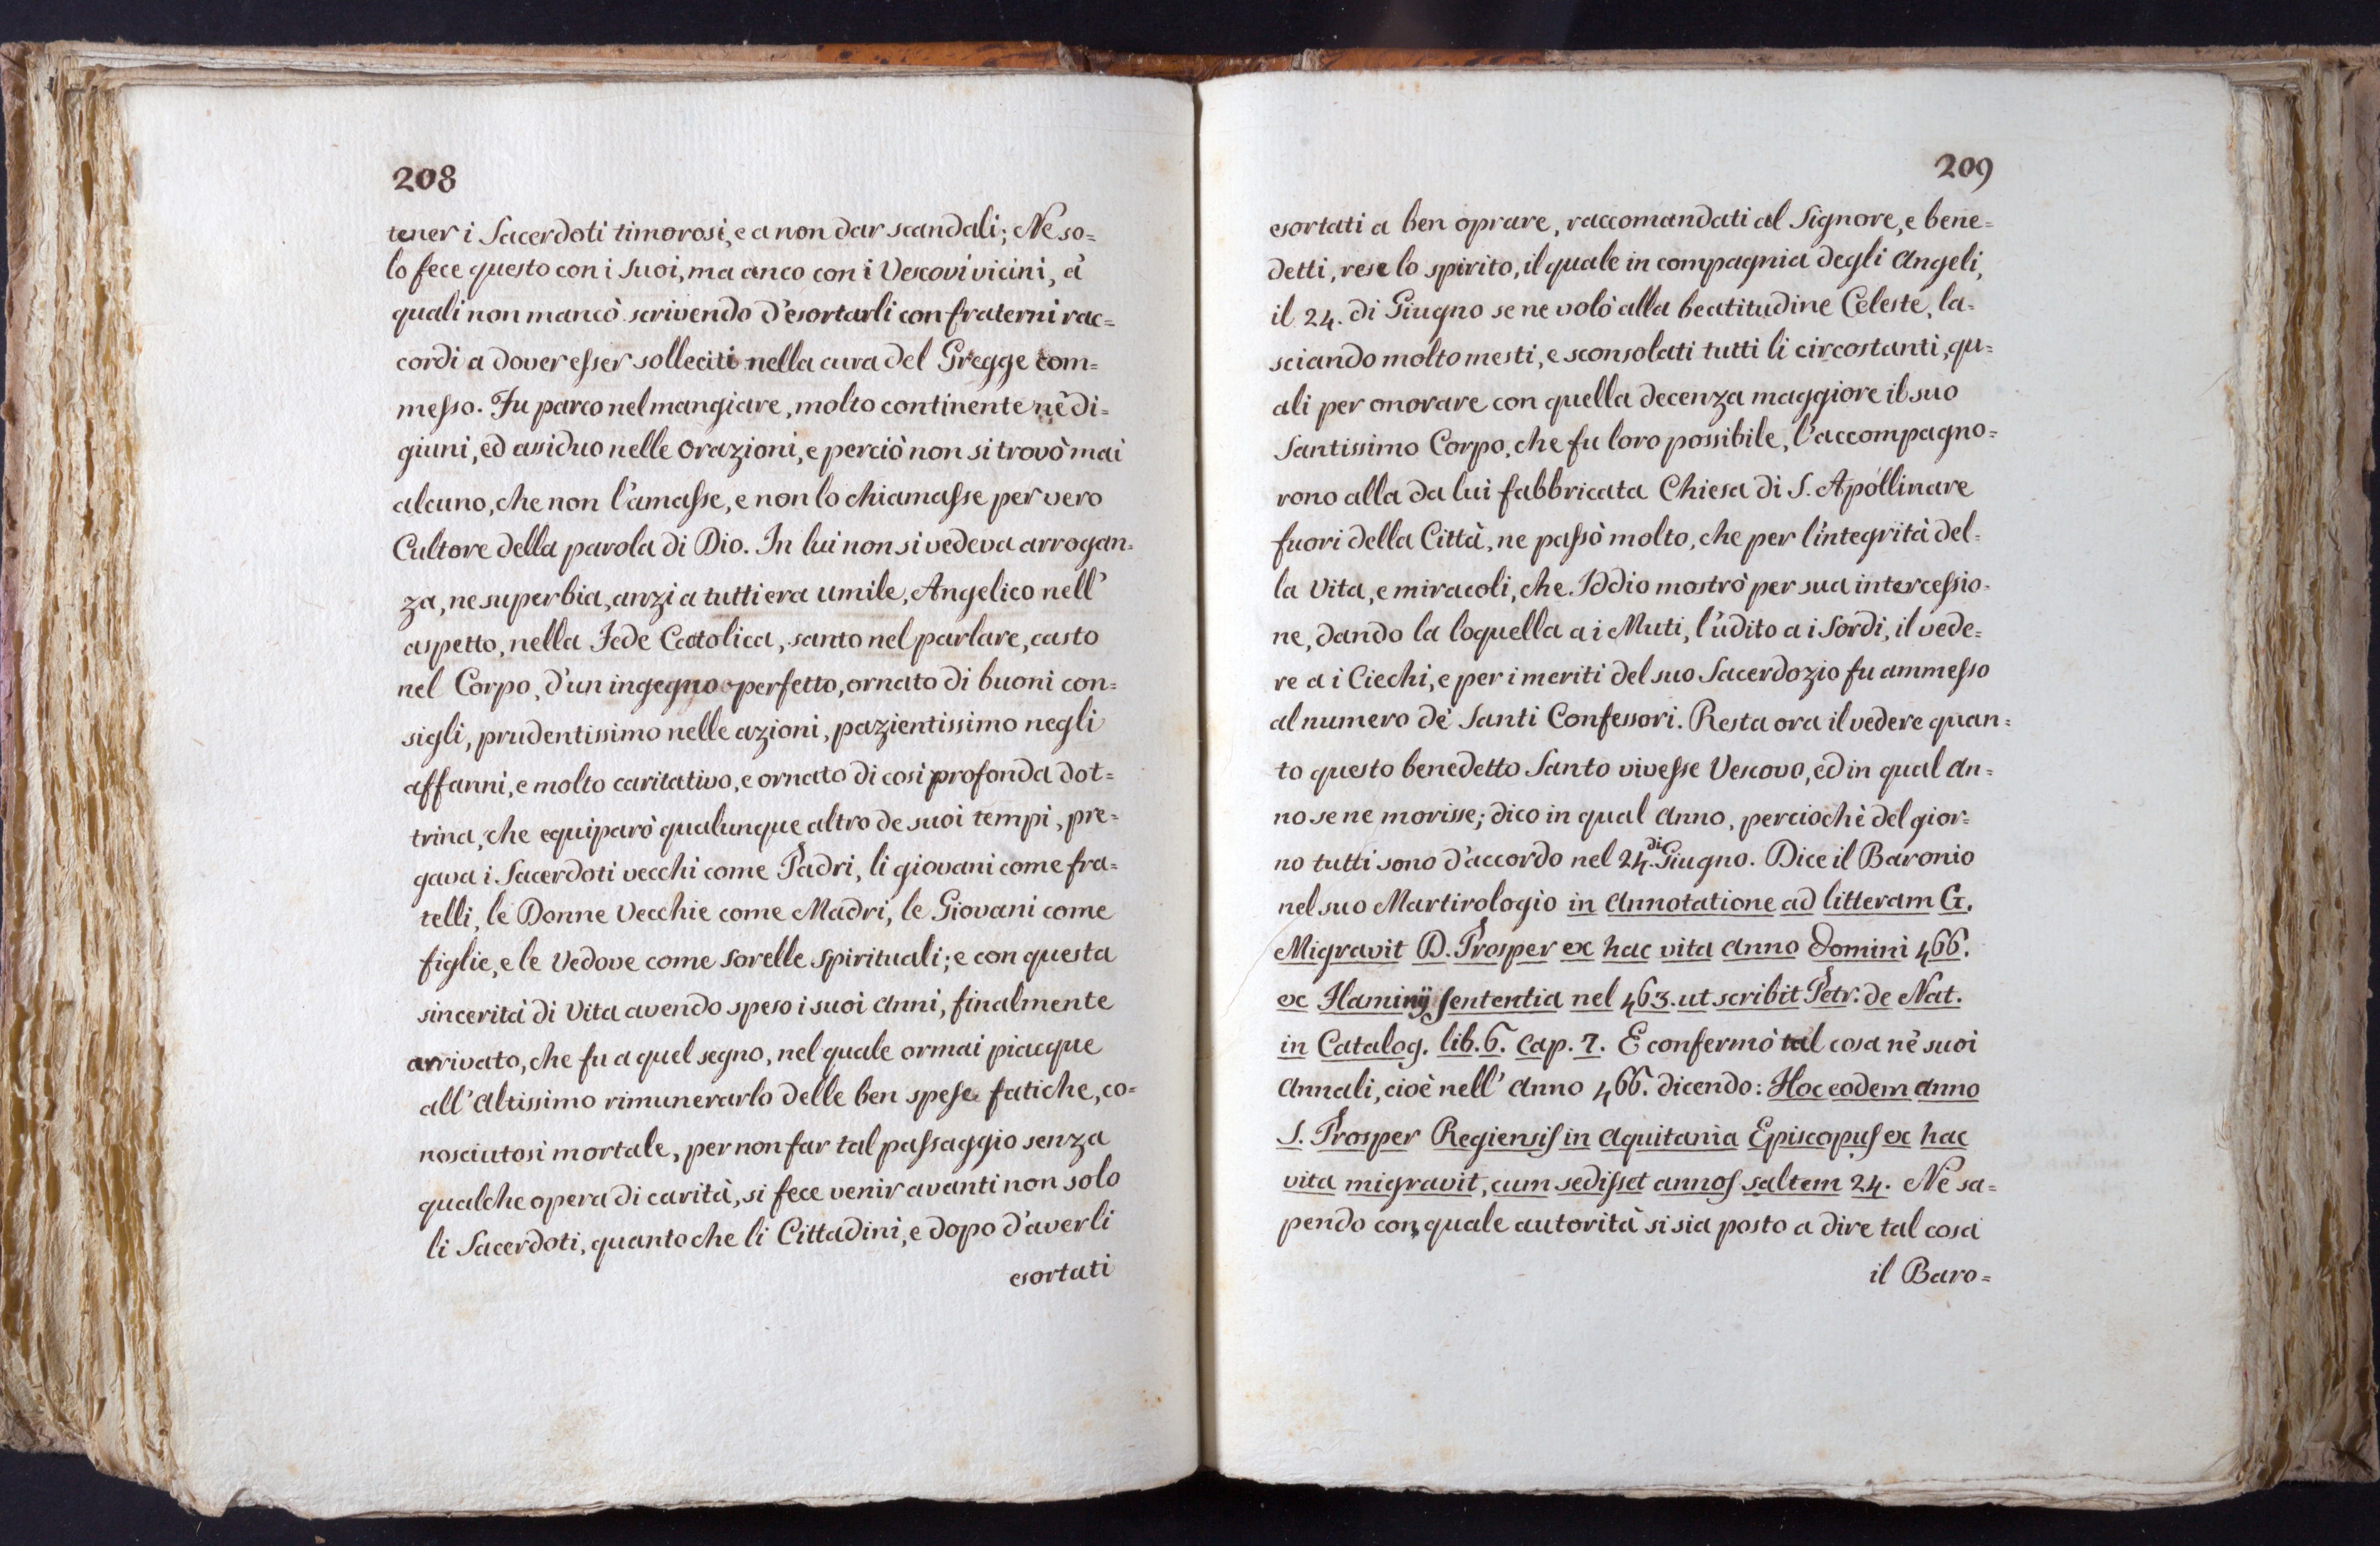 208
tener i Sacerdoti timorosi, e a non dar scandali; Ne so=
lo fece questo con i suoi, ma anco con i Vescovi vicini, à
quali non mancò scrivendo d'esortarli con fraterni rac=
cordi a dover esser solleciti nella cura del Gregge com=
messo. Fu parco nel mangiare, molto continente nè di=
giuni, ed assiduo nelle orazioni, e perciò non si trovò mai
alcuno, che non l'amasse, e non lo chiamasse per vero
Cultore della parola di Dio. In lui non si vedeva arrogan=
za, ne superbia, anzi a tutti era umile, Angelico nell'
aspetto, nella Fede Cattolica, santo nel parlare, casto
nel Corpo, d'un ingegno perfetto, ornato di buoni con=
sigli, prudentissimo nelle azioni, pazientissimo negli
affanni, e molto caritativo, e ornato di così profonda dot=
trina, che equiparò qualunque altro de suoi tempi, pre=
gava i Sacerdoti vecchi come Padri, li giovani come fra=
telli, le Donne Vecchie come Madri, le Giovani come
figlie, e le Vedove come sorelle spirituali; e con questa
sincerità di Vita avendo speso i suoi anni, finalmente
arrivato, che fu a quel segno, nel quale ormai piacque
all'Altissimo rimunerarlo delle ben spese fatiche, co=
nosciutosi mortale, per non far tal passaggio senza
qualche opera di carità, si fece venir avanti non solo
li Sacerdoti, quanto che li Cittadini, e dopo d'averli
esortati
209
esortati a ben oprare, raccomandati al Signore, e bene=
detti, rese lo spirito, il quale in compagnia degli Angeli,
il 24. di Giugno se ne volò alla beatitudine Celeste, la=
sciando molto mesti, e sconsolati tutti li circostanti, qu=
ali per onorare con quella decenza maggiore il suo
Santissimo Corpo, che fu loro possibile, l'accompagno=
rono alla da lui fabbricata Chiesa di S. Apollinare
fuori della Città, ne passò molto, che per l'integrità del=
la Vita, e miracoli, che Iddio mostrò per sua intercessio=
ne, dando la loquella a i Muti, l'udito a i Sordi, il vede=
re a i Ciechi, e per i meriti del suo Sacerdozio fu ammesso
al numero de' Santi Confessori. Resta ora il vedere quan=
to questo benedetto Santo vivesse Vescovo, ed in qual An=
no se ne morisse; dico in qual Anno, perciochè del gior=
no tutti sono d'accordo nel 24. di Giugno. Dice il Baronio
nel suo Martirologio in Annotatione ad litteram G.
Migravit D. Prosper ex hac vita Anno Domini 466.
ex Flaminij sententia nel 463. ut scribit Petr. de Nat.
in Catalog. lib. 6. Cap. 7. E confermò tal cosa nè suoi
Annali, cioè nell' Anno 466. dicendo: Hoc eodem anno
S. Prosper Regiensis in Aquitania Episcopus ex hac
vita migravit, cum sedisset annos saltem 24. Nè sa=
pendo con quale autorità si sia posto a dire tal cosa
il Baro=